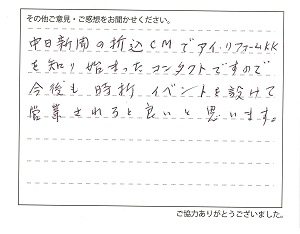 その他ご意見・ご感想をお聞かせください。
中日新聞の折込CMでアイ・リフォームKK
を知り始まったコンタクトですので
今後も時折イベントを設けて
営業されると良いと思います。
ご協力ありがとうございました。